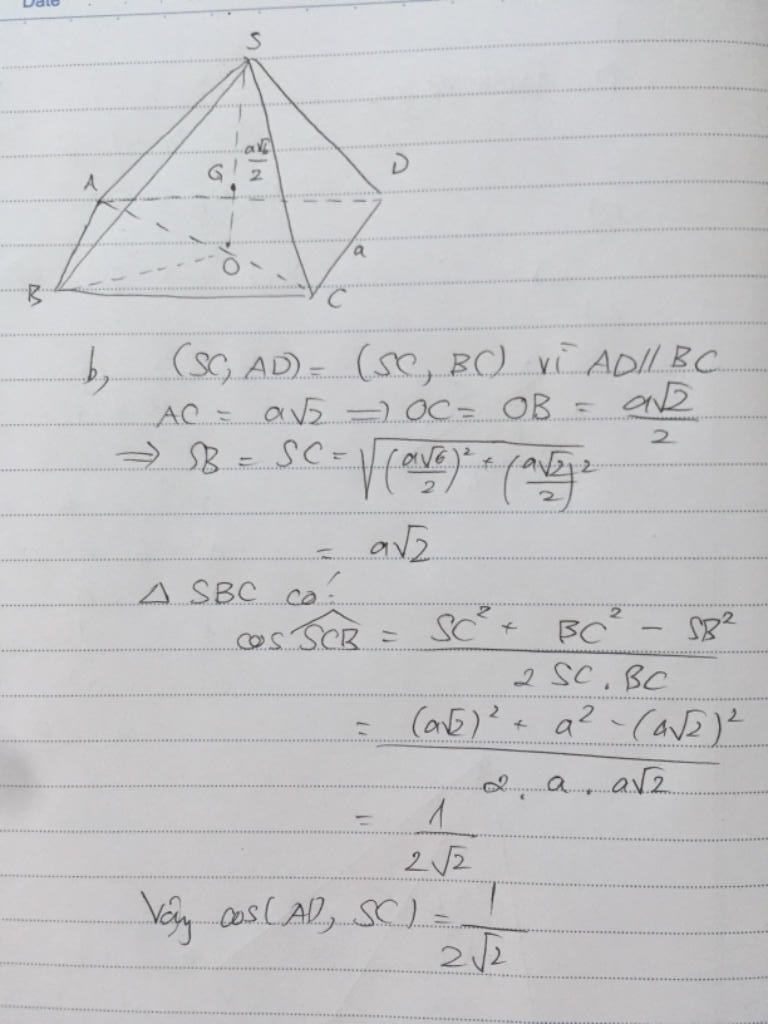 Date
S
a√6/2
G
A
D
O
a
B
C
b, (SC, AD) = (SC, BC) vì AD // BC
AC = a√2 ⟹ OC = OB = a√2/2
⟹ SB = SC = √((a√6/2)² + (a√2/2)²)
= a√2
△ SBC có:
cos SCB^ = (SC² + BC² - SB²)/(2 SC . BC)
= ((a√2)² + a² - (a√2)²)/(2 . a . a√2)
= 1/(2√2)
Vậy cos(AD, SC) = 1/(2√2)